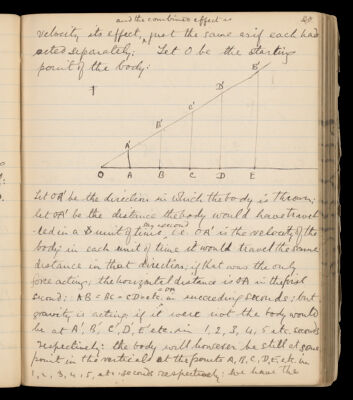 and the combined effect is
velocity its effect, just the same as if each had
acted separately: Let O be the starting
point of the body:
E'
D'
C'
B'
A'
O A B C D E
Let OA' be the direction in which the body is thrown;
let OA' be the distance the body would have travel-
led in a unit of time,
any second
i.e. OA' is the velocity of the
body: in each unit of time it would travel the same
distance in that direction, if that was the only
force acting; the horizontal distance is OA in the first
second: AB = BC = CD = etc. in succeeding seconds; but
= OA
gravity is acting; if it were not the body would
be at A', B', C', D', E' etc. in 1, 2, 3, 4, 5 etc. seconds
respectively: the body will however be still at some
point in the verticals at the points A, B, C, D, E etc. in
1, 2, 3, 4, 5, etc. seconds respectively: we have the